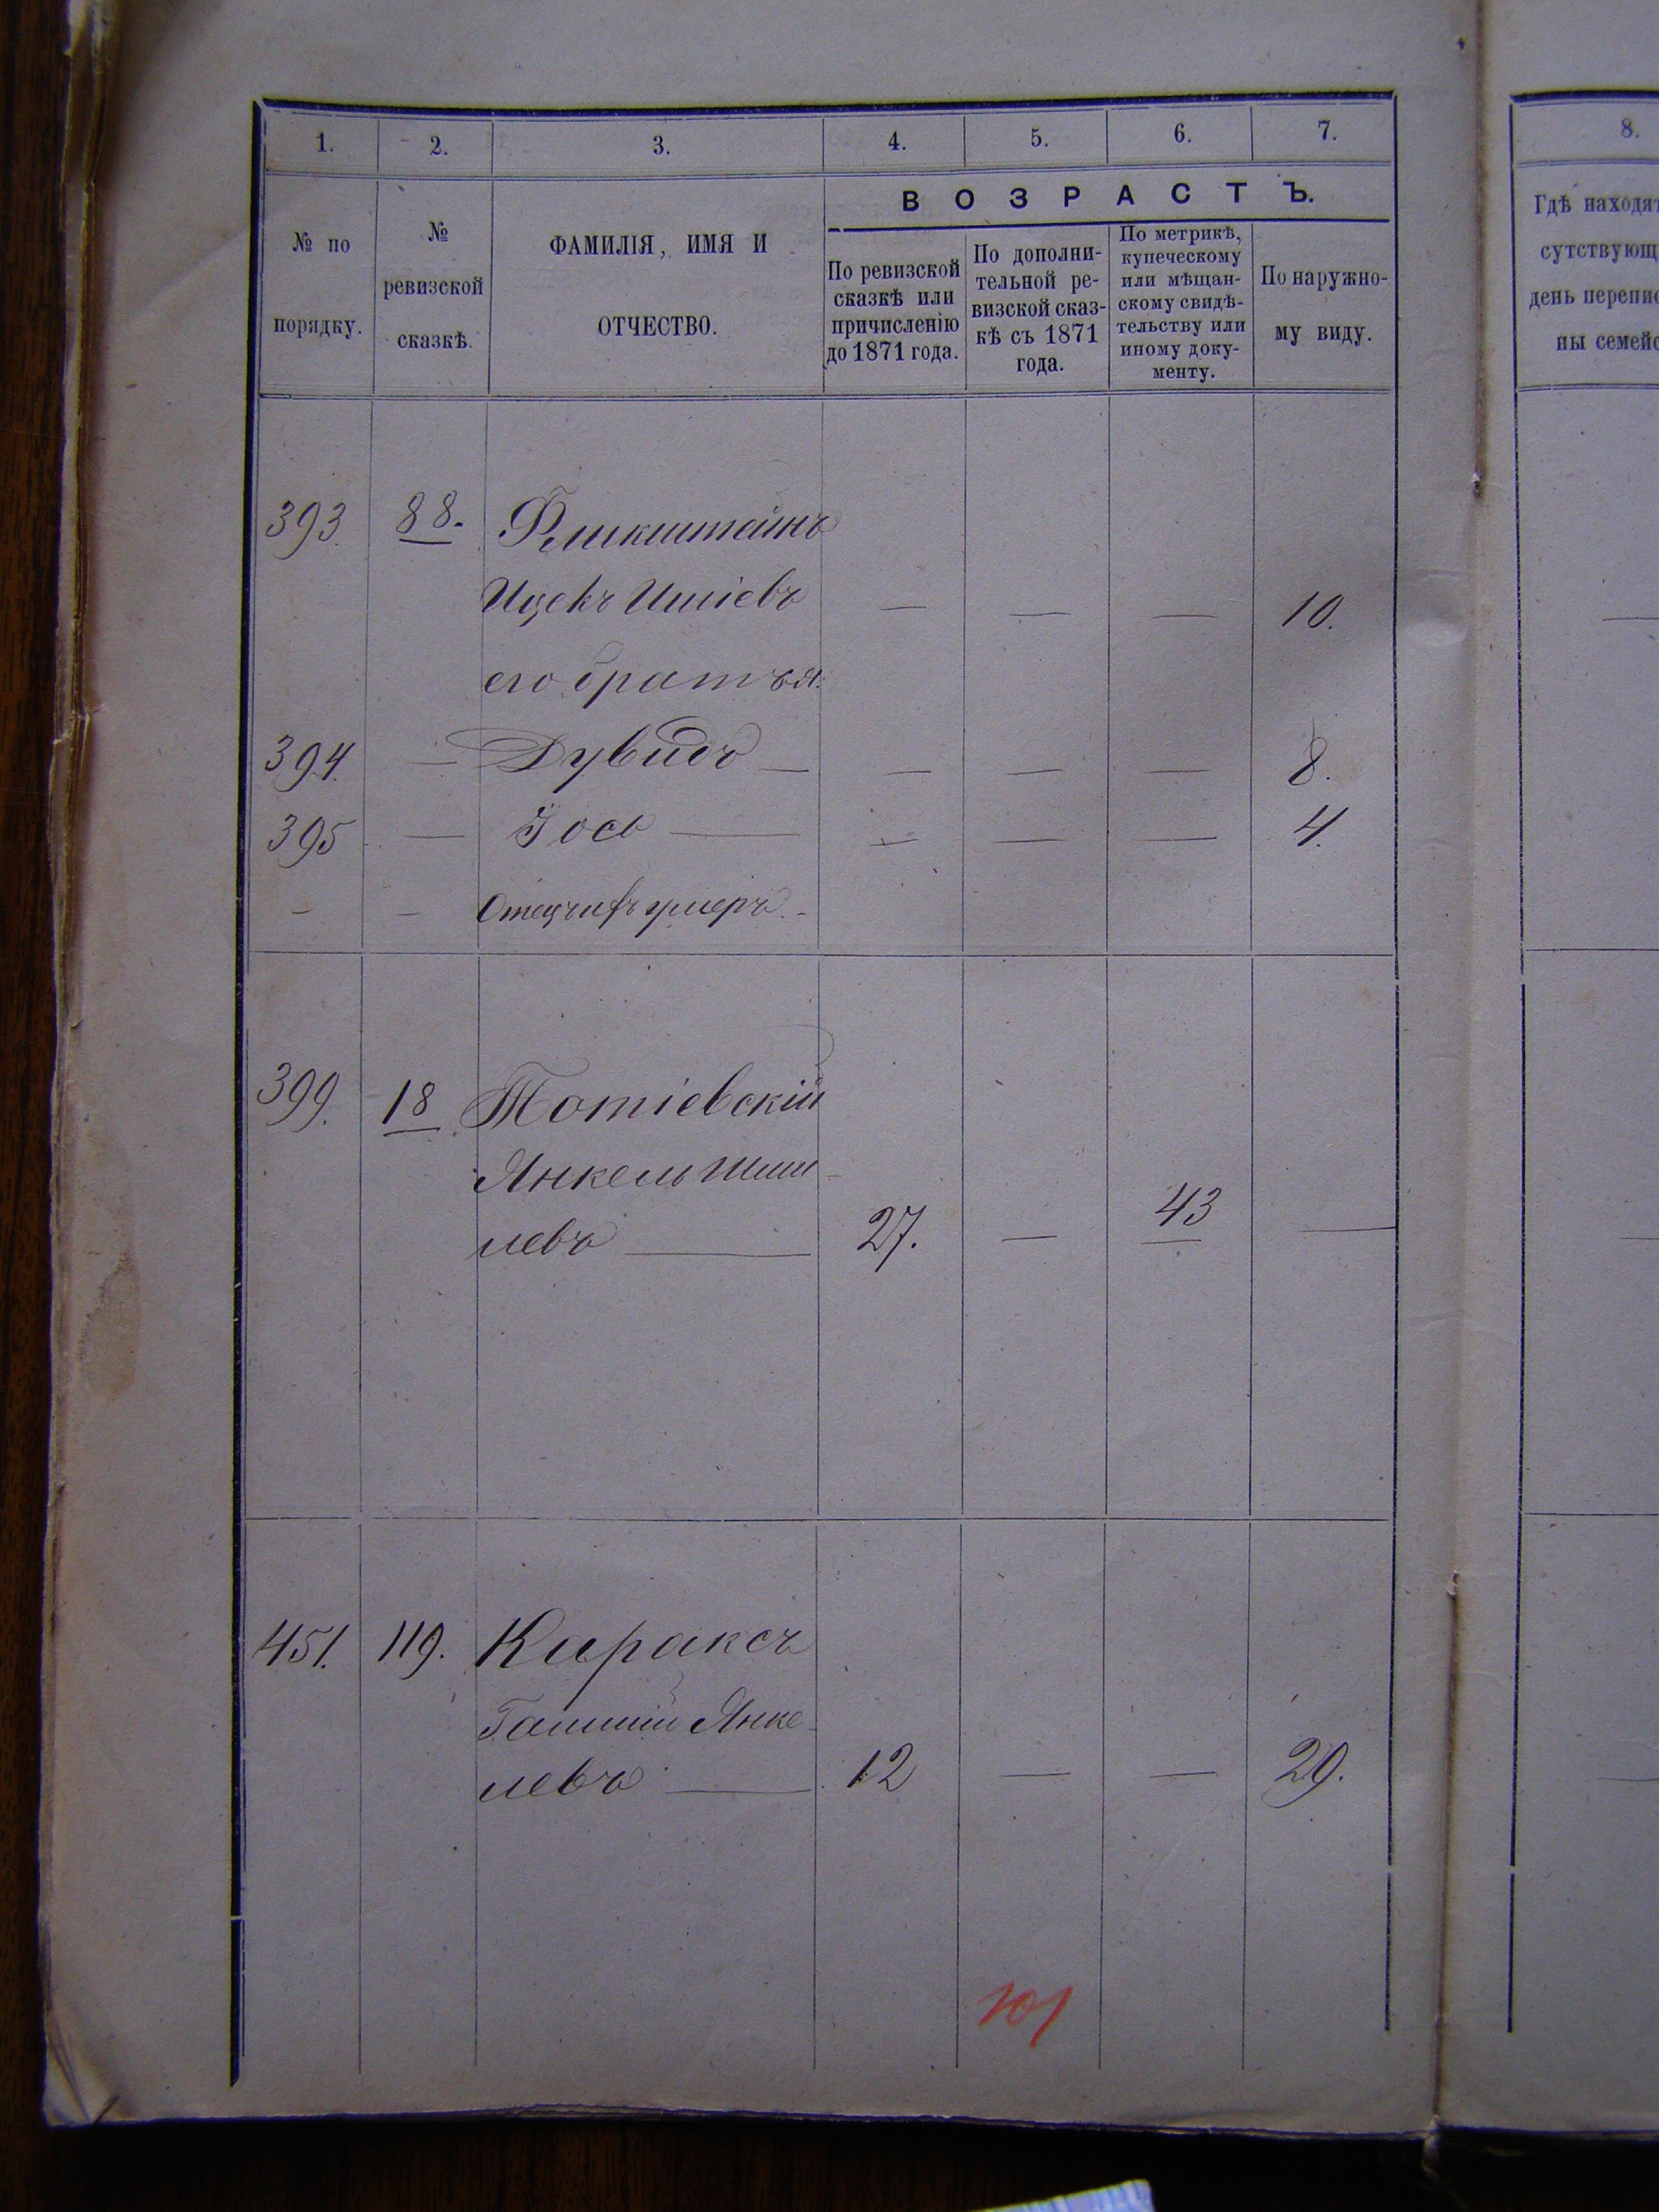 1. 2. 3. 4. 5. 6. 7. 8.
ВОЗРАСТЪ.
№ по
порядку.
№
ревизской
сказкѣ.
ФАМИЛІЯ, ИМЯ И
ОТЧЕСТВО.
По ревизской
сказкѣ или
причисленію
до 1871 года.
По дополни-
тельной ре-
визской сказ-
кѣ съ 1871
года.
По метрикѣ,
купеческому
или мѣщан-
скому свидѣ-
тельству или
иному доку-
менту.
По наружно-
му виду.
Гдѣ находят
сутствующ
день перепис
ны семейс
393. 88. Фликштейнъ
Ицекъ Ишіевъ — — — 10.
его братья:
394. — Дувидъ — — — — 8.
395 — Іось — — — — 4.
— — Отецъ ихъ умеръ. —
399. 18 Потіевскій
Янкель Шми-
левъ — 27. — 43 —
451. 119. Караксъ
Янке-
левъ — 12 — — 29.
101